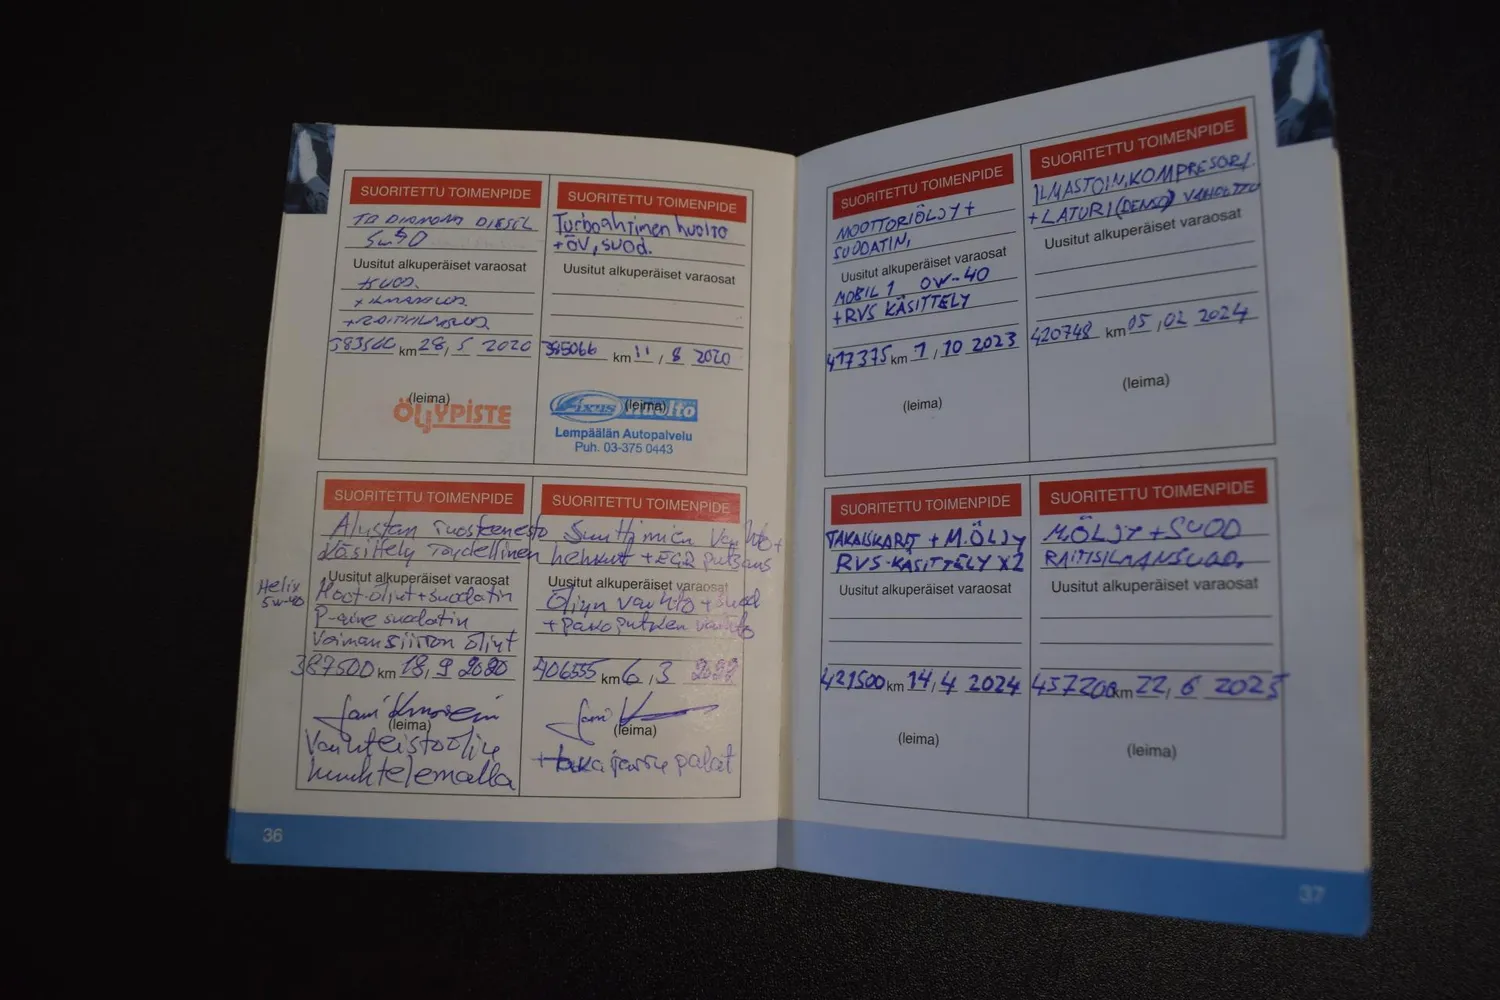 SUORITETTU TOIMENPIDE
DIESEL
5w30
Uusitut alkuperäiset varaosat
+SUOD.
+RAITISILMASUOD.
383566 km 28, 5 2020
(leima)
ÖLJYPISTE
SUORITETTU TOIMENPIDE
Turboahtimen huolto
+ÖV, suod.
Uusitut alkuperäiset varaosat
385066 km 11, 8 2020
(leima)
Fixus huolto
Lempäälän Autopalvelu
Puh. 03-375 0443
SUORITETTU TOIMENPIDE
Alustan ruosteenesto
Käsittely Täydellinen
Uusitut alkuperäiset varaosat
Helix
5w-40
Moot.öljyt+suodatin
P-aine suodatin
Voimansiirron öljyt
387500 km 18, 9 2020
(leima)
Vaihteistoöljy
huuhtelemalla
SUORITETTU TOIMENPIDE
Suuttimien vaihto+
hehkut +EGR putsaus
Uusitut alkuperäiset varaosat
Öljyn vaihto + suod
+ pakoputken vaihto
406555 km 6, 3 2022
(leima)
+taka jarru palat
36
SUORITETTU TOIMENPIDE
MOOTTORIÖLJY +
SUODATIN,
Uusitut alkuperäiset varaosat
MOBIL 1 0W-40
+RVS KÄSITTELY
417375 km 1, 10 2023
(leima)
SUORITETTU TOIMENPIDE
ILMASTOIN.KOMPRESORI
+ LATURI (DENSO) VAIHDETTU
Uusitut alkuperäiset varaosat
420748 km 05, 02 2024
(leima)
SUORITETTU TOIMENPIDE
TAKAISKARIT + M.ÖLJY
RVS-KÄSITTELY X2
Uusitut alkuperäiset varaosat
421500 km 14, 4 2024
(leima)
SUORITETTU TOIMENPIDE
M.ÖLJY + SUOD
RAITISILMANSUOD.
Uusitut alkuperäiset varaosat
457200 km 22, 6 2025
(leima)
37